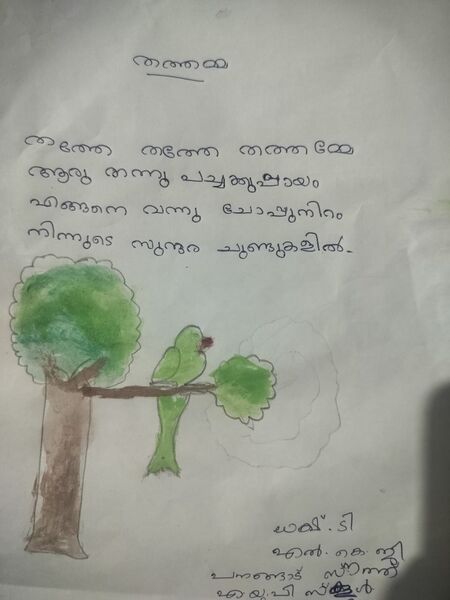 തത്തമ്മ
തത്തേ തത്തേ തത്തമ്മേ
ആരു തന്നു പച്ചക്കുപ്പായം
എങ്ങനെ വന്നു ചോപ്പുനിറം
നിന്നുടെ സുന്ദര ചുണ്ടുകളിൽ.
ധക്ഷ്. ടി
എൽ. കെ. ജി
പനങ്ങാട് സൗത്ത്
എ യു. പി സ്കൂൾ.